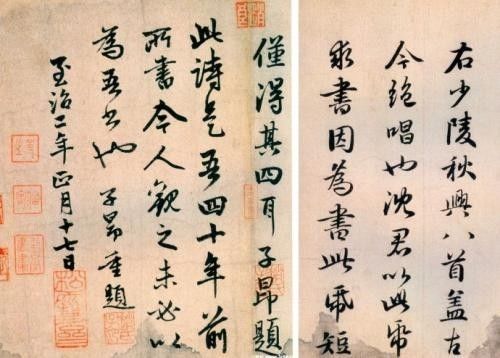 右少陵秋興八首盖古
今絶唱也沈君以此帋
求書因為書此帋短
僅得其四耳子昂題
此詩是吾四十年前
所書今人觀之未必以
為吾書也子昂重題
至治二年正月十七日